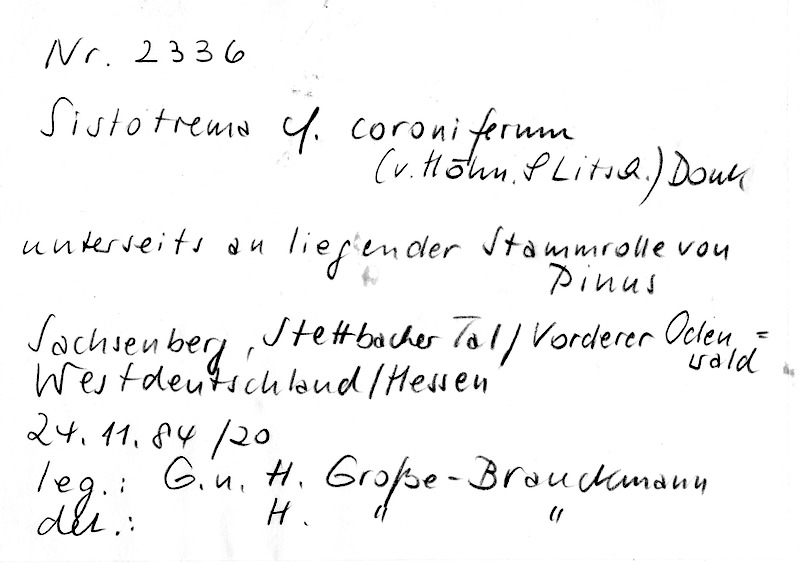 Nr. 2336
Sistotrema cf. coroniferum
(v. Höhn. & Litsch.) Donk
unterseits an liegender Stammrolle von
Pinus
Sachsenberg, Stettbacher Tal / Vorderer Oden=
wald
Westdeutschland / Hessen
24.11.84 /20
leg.: G. u. H. Große-Brauckmann
det.: H. " "